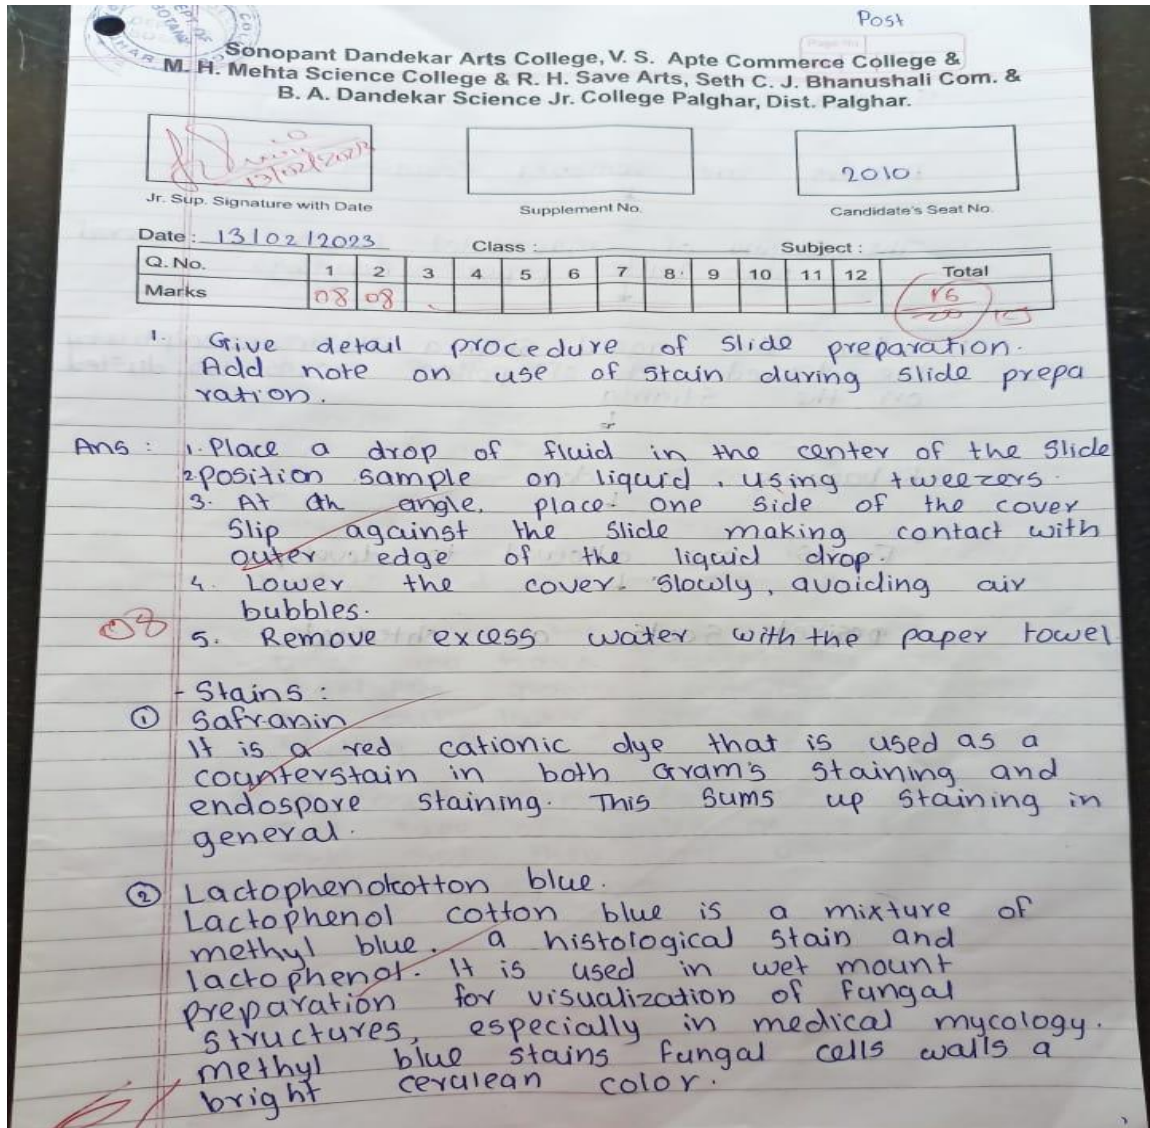 Post
DEPT. OF
BOTANY
Page No.
Sonopant Dandekar Arts College, V. S. Apte Commerce College &
M. H. Mehta Science College & R. H. Save Arts, Seth C. J. Bhanushali Com. &
B. A. Dandekar Science Jr. College Palghar, Dist. Palghar.
13/02/2023
2010
Jr. Sup. Signature with Date
Supplement No.
Candidate's Seat No.
Date : 13/02/2023 Class : Subject :
Q. No. 1 2 3 4 5 6 7 8 9 10 11 12 Total
Marks 08 08 16
20
1. Give detail procedure of slide preparation.
Add note on use of stain during slide prepa
ration.
Ans : 1. Place a drop of fluid in the center of the slide
2 position sample on liquid, using tweezers.
3. At th angle, place one side of the cover
slip against the slide making contact with
outer edge of the liquid drop.
4. Lower the cover slowly, avoiding air
bubbles.
08
5. Remove excess water with the paper towel.
- Stains :
① Safranin
It is a red cationic dye that is used as a
counterstain in both Gram's staining and
endospore staining. This sums up staining in
general.
② Lactophenolcotton blue.
Lactophenol cotton blue is a mixture of
methyl blue. a histological stain and
lactophenol. It is used in wet mount
preparation for visualization of fungal
structures, especially in medical mycology.
methyl blue stains fungal cells walls a
bright cerulean color.